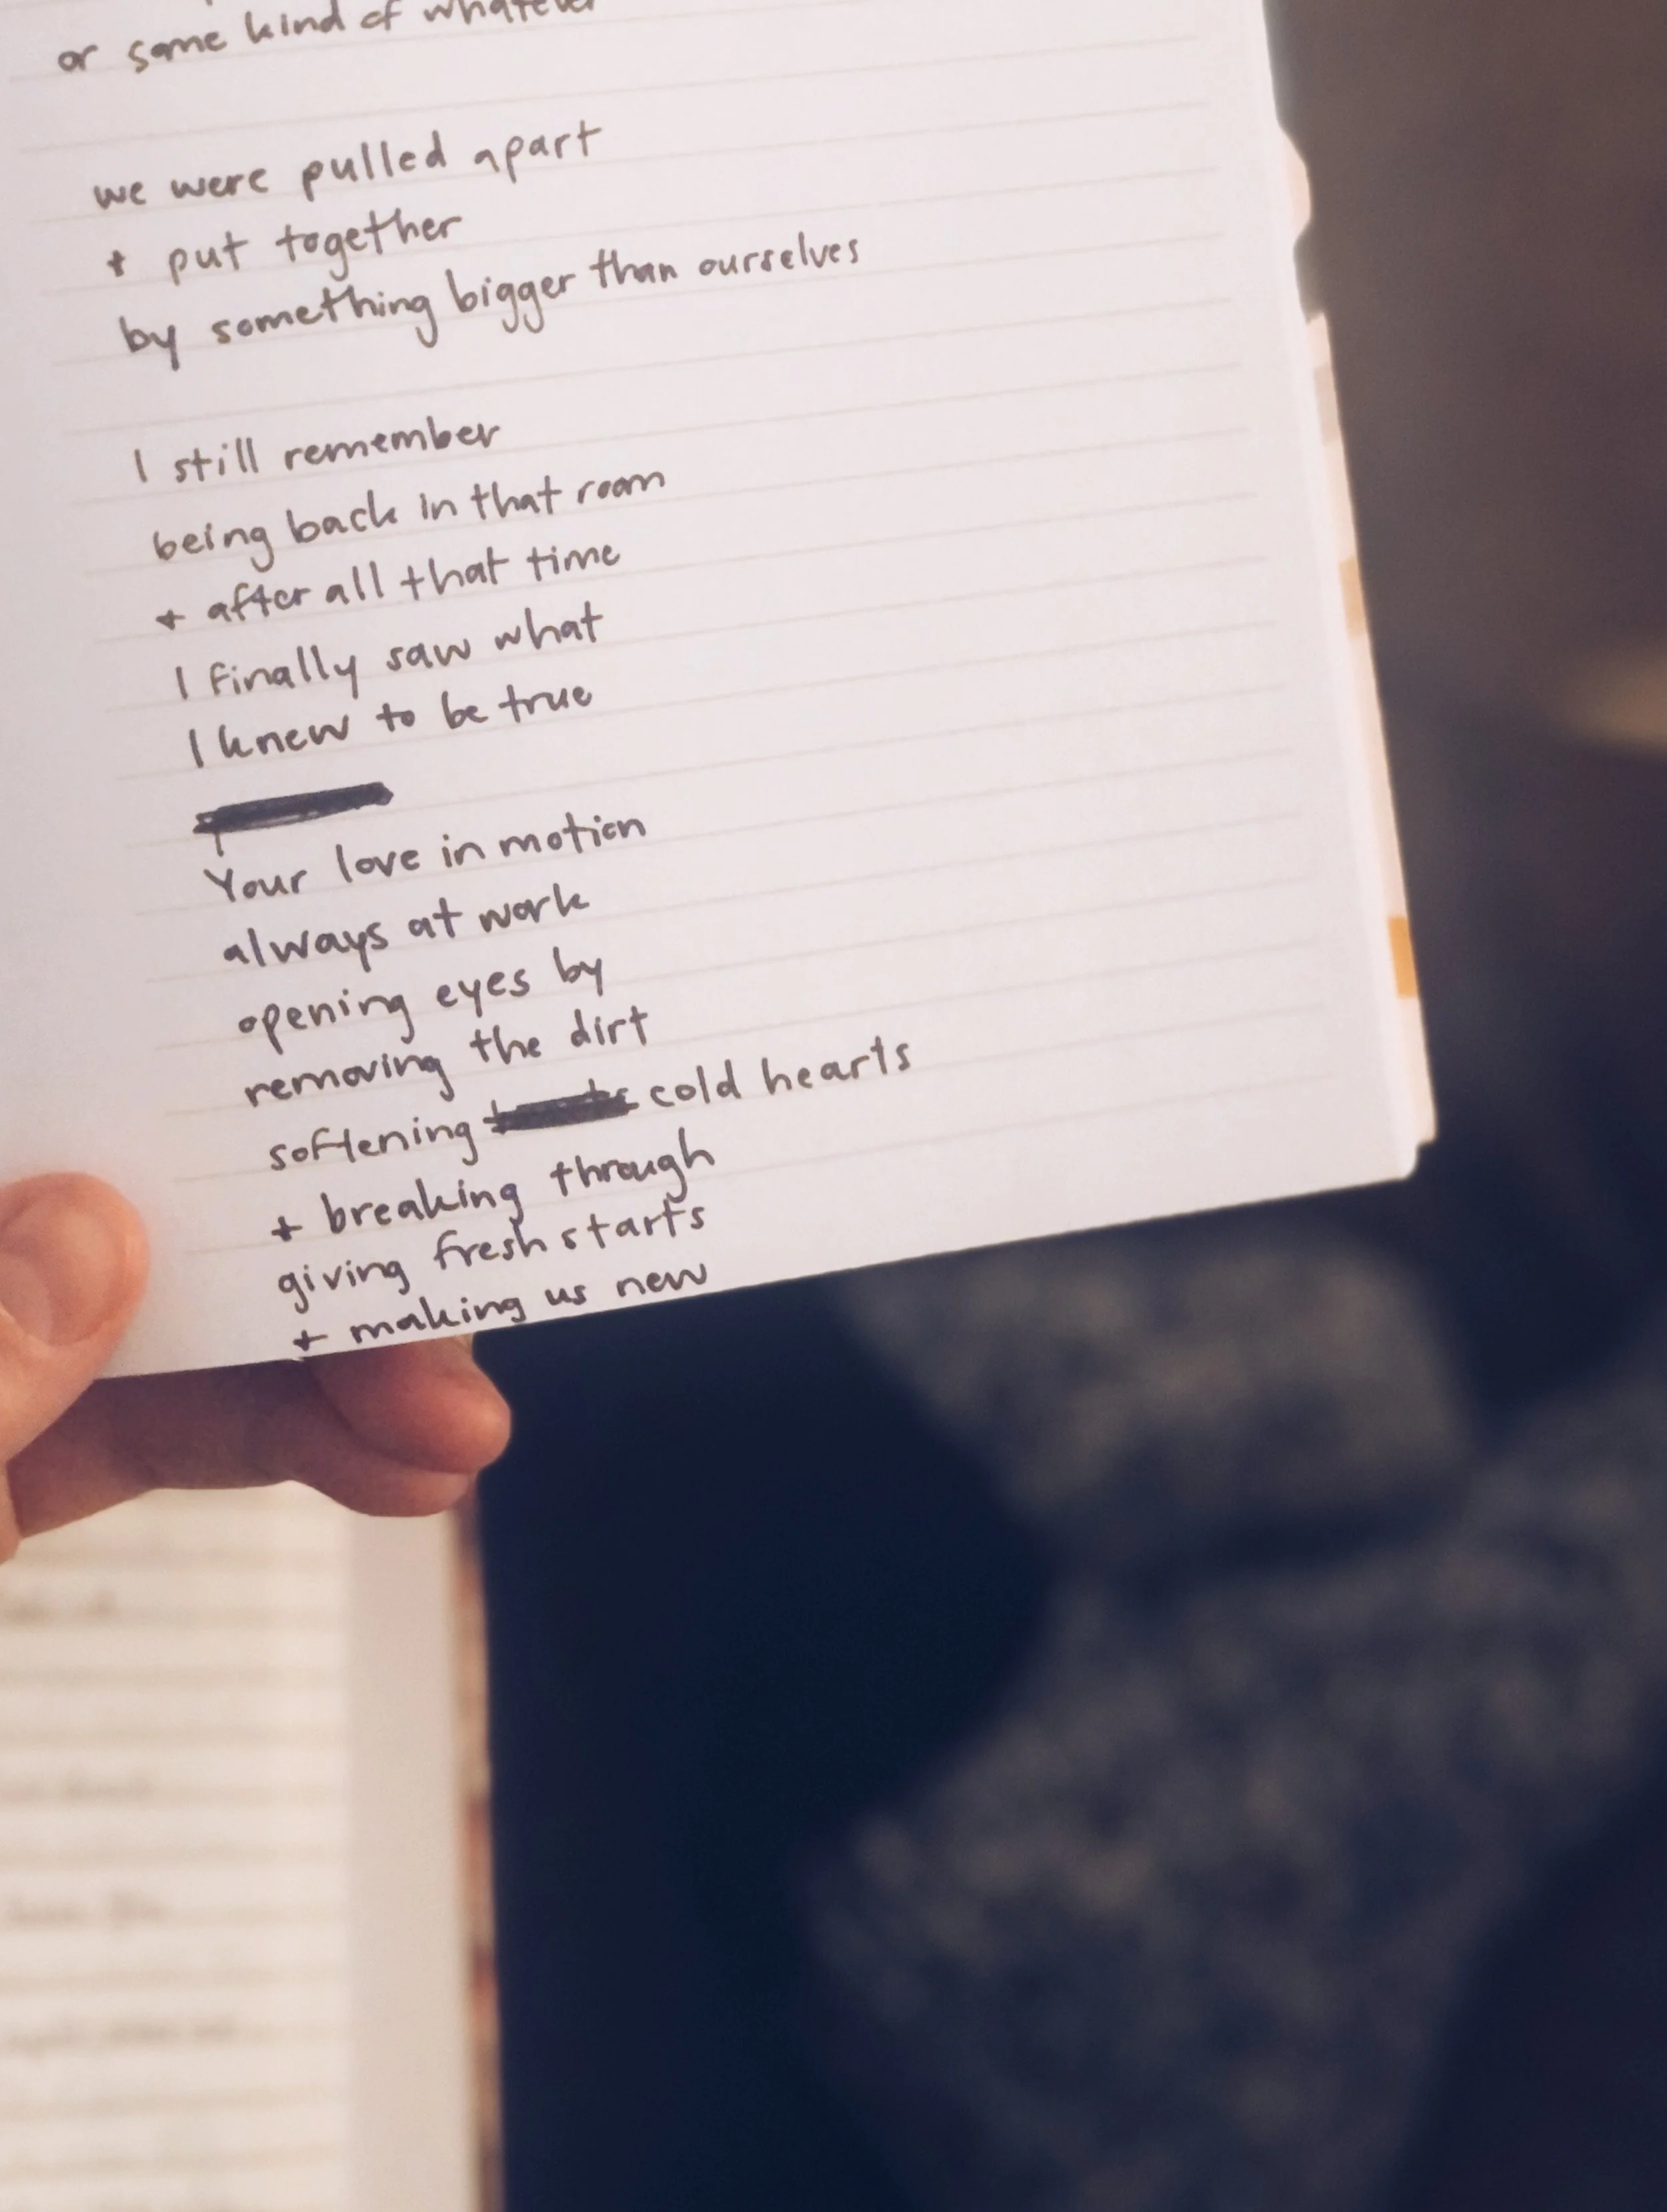 or some kind of whatever
we were pulled apart
+ put together
by something bigger than ourselves
I still remember
being back in that room
+ after all that time
I finally saw what
I knew to be true
Your love in motion
always at work
opening eyes by
removing the dirt
softening cold hearts
+ breaking through
giving fresh starts
+ making us new